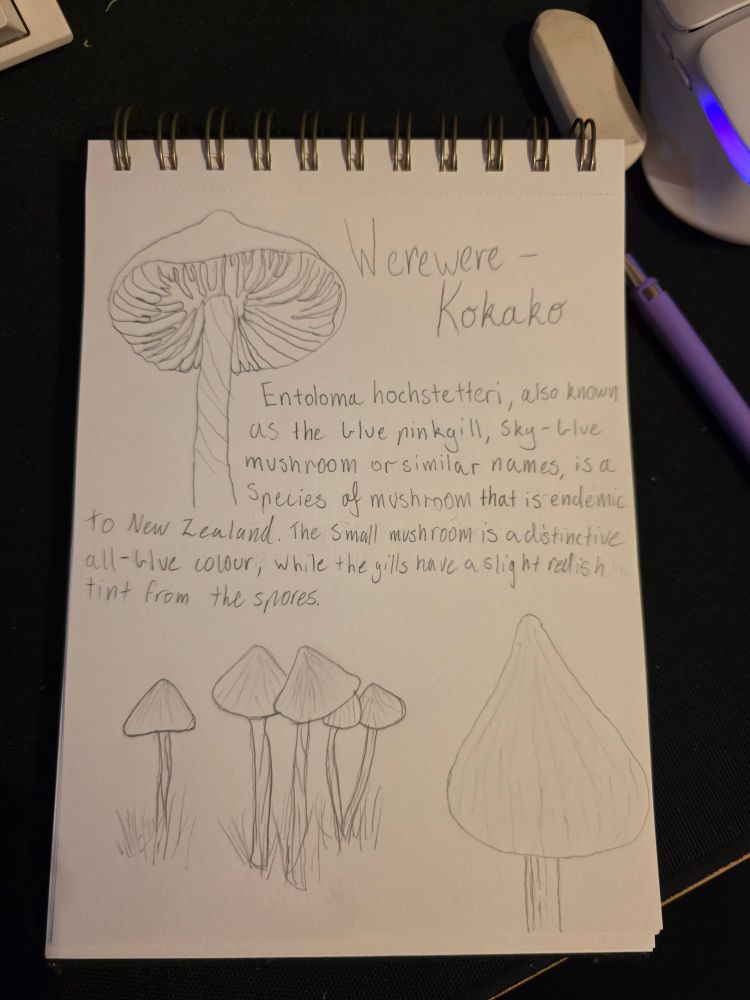 Werewere-
Kokako
Entoloma hochstetteri, also known
as the blue pinkgill, sky-blue
mushroom or similar names, is a
species of mushroom that is endemic
to New Zealand. The small mushroom is a distinctive
all-blue colour, while the gills have a slight redish
tint from the spores.